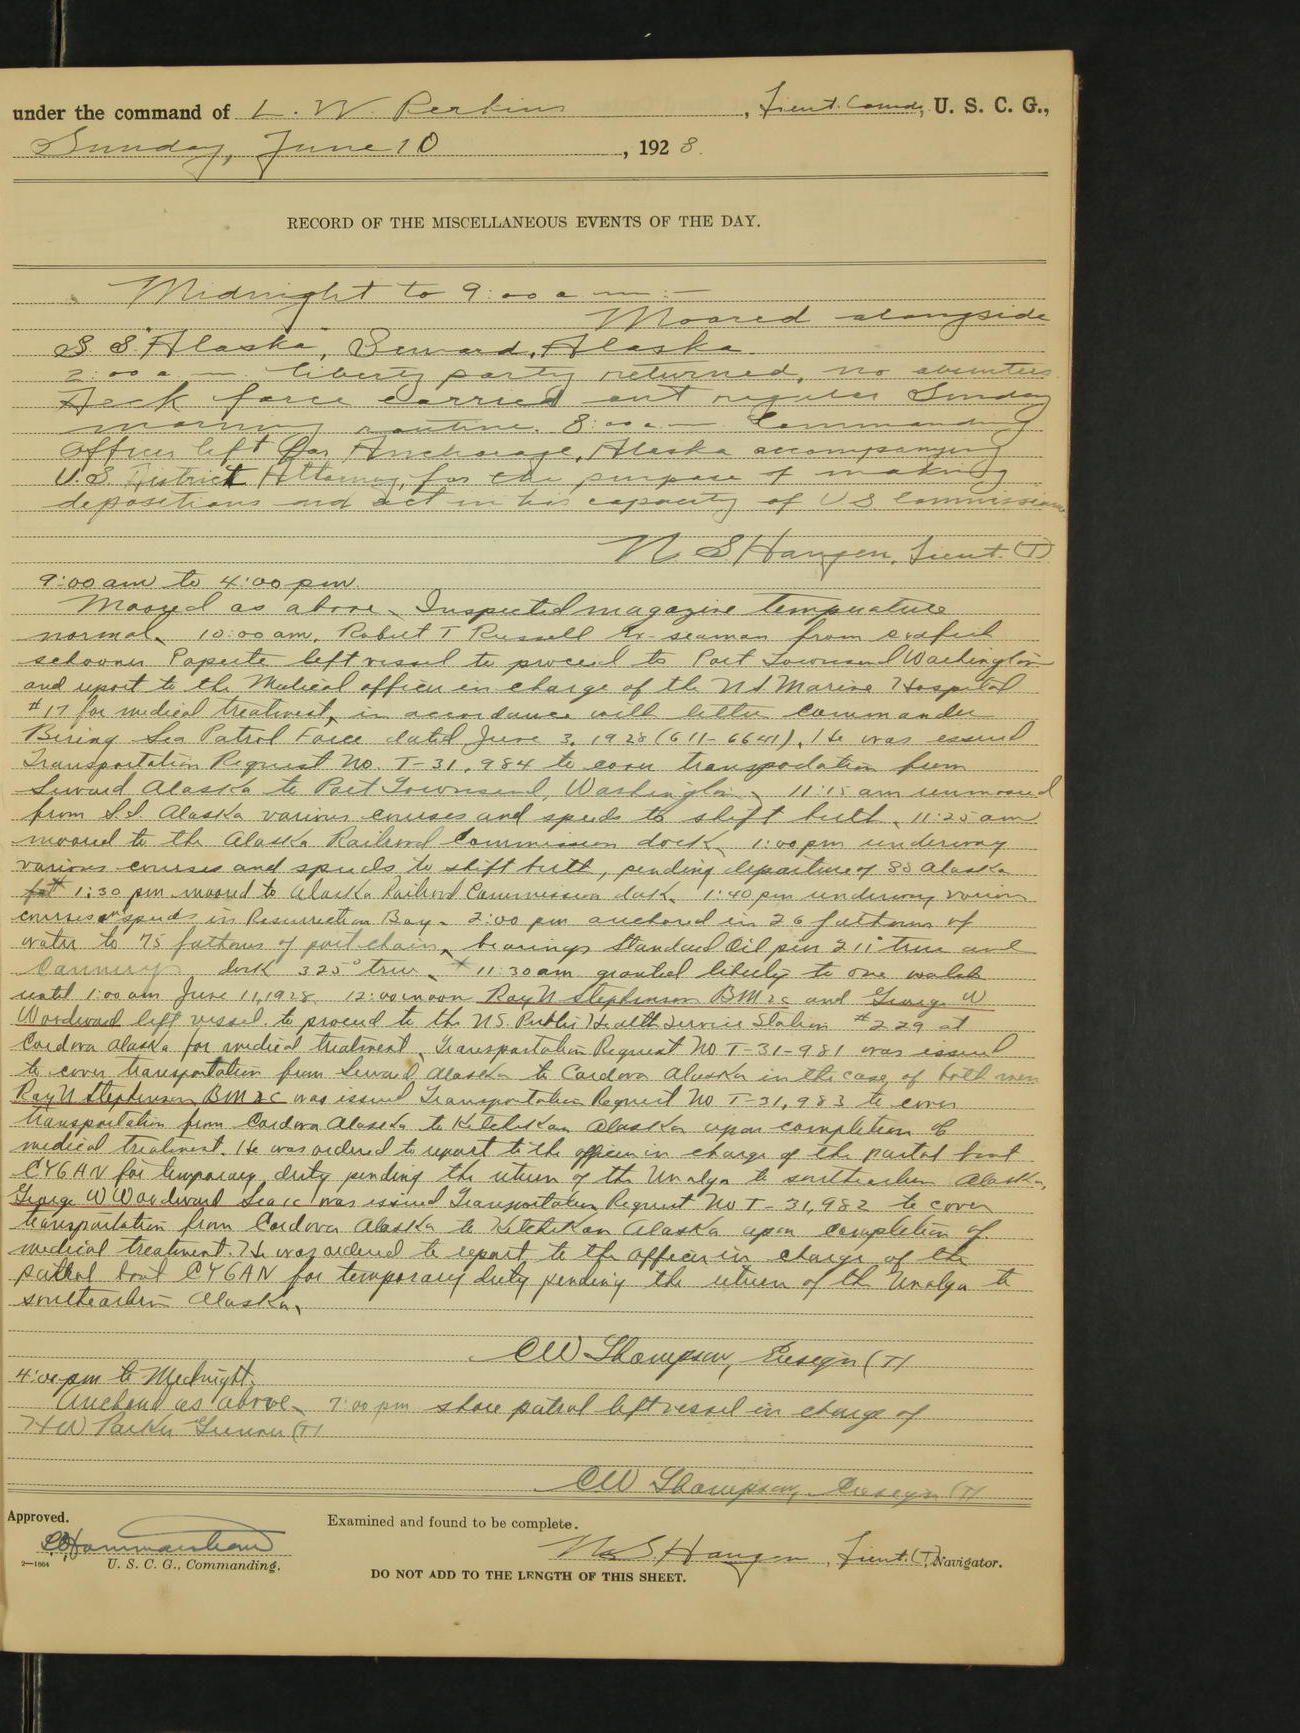 under the command of L. W. Perkins, Lieut. Comdr, U. S. C. G.,
Sunday, June 10, 1928.
RECORD OF THE MISCELLANEOUS EVENTS OF THE DAY.
Midnight to 9:00 a m :-
Moored alongside
S. S. "Alaska", Seward, Alaska.
2:00 a m liberty party returned, no absentees
Deck force carried out regular Sunday
morning routine. 8:00 a m Commanding
Officer left for Anchorage, Alaska accompanying
U.S. District Attorney, for the purpose of making
depositions and act in his capacity of U S Commissioner
N. S. Haugen, Lieut. (T)
9:00 am to 4:00 pm.
Moored as above. Inspected magazine temperature
normal. 10:00 am. Robert T Russell Ex-seaman from codfish
schooner Papeete left vessel to proceed to Port Townsend Washington
and report to the Medical officer in charge of the U S Marine Hospital
#17 for medical treatment, in accordance with letter Commander
Bering Sea Patrol Force dated June 3, 1928 (611-6641). He was issued
Transportation Request No. T-31,984 to cover transportation from
Seward Alaska to Port Townsend, Washington. 11:15 am unmoored
from S.S. Alaska various courses and speeds to shift berth. 11:25 am
moored to the Alaska Railroad Commission dock. 1:00 pm underway
various courses and speeds to shift berth, pending departure of SS Alaska
1:30 pm moored to Alaska Railroad Commission dock. 1:40 pm underway various
courses and speeds in Resurrection Bay. 2:00 pm anchored in 26 fathoms of
water to 75 fathoms of port chain, bearings Standard Oil pier 211° true and
Cannery dock 325° true. * 11:30 am granted liberty to one watch
until 1:00 am June 11, 1928. 12:00 noon Ray N Stephenson BM2c and George W
Woodward left vessel to proceed to the U.S. Public Health Service Station #229 at
Cordova Alaska for medical treatment. Transportation Request No T-31-981 was issued
to cover transportation from Seward Alaska to Cordova Alaska in the case of both men
Ray N Stephenson BM2c was issued Transportation Request No T-31,983 to cover
transportation from Cordova Alaska to Ketchikan Alaska upon completion of
medical treatment. He was ordered to report to the officer in charge of the patrol boat
CYGAN for temporary duty pending the return of the Unalga to southeastern Alaska.
George W Woodward Sea1c was issued Transportation Request No T-31,982 to cover
transportation from Cordova Alaska to Ketchikan Alaska upon completion of
medical treatment. He was ordered to report to the officer in charge of the
patrol boat CYGAN for temporary duty pending the return of the Unalga to
southeastern Alaska.
CW Thompson, Ensign (T)
4:00 pm to Midnight.
Anchored as above. 7:00 pm shore patrol left vessel in charge of
HW Parker Gunner (T)
CW Thompson, Ensign (T)
Approved.
Examined and found to be complete.
U. S. C. G., Commanding.
N. S. Haugen, Lieut. (T), Navigator.
2—1664
DO NOT ADD TO THE LENGTH OF THIS SHEET.